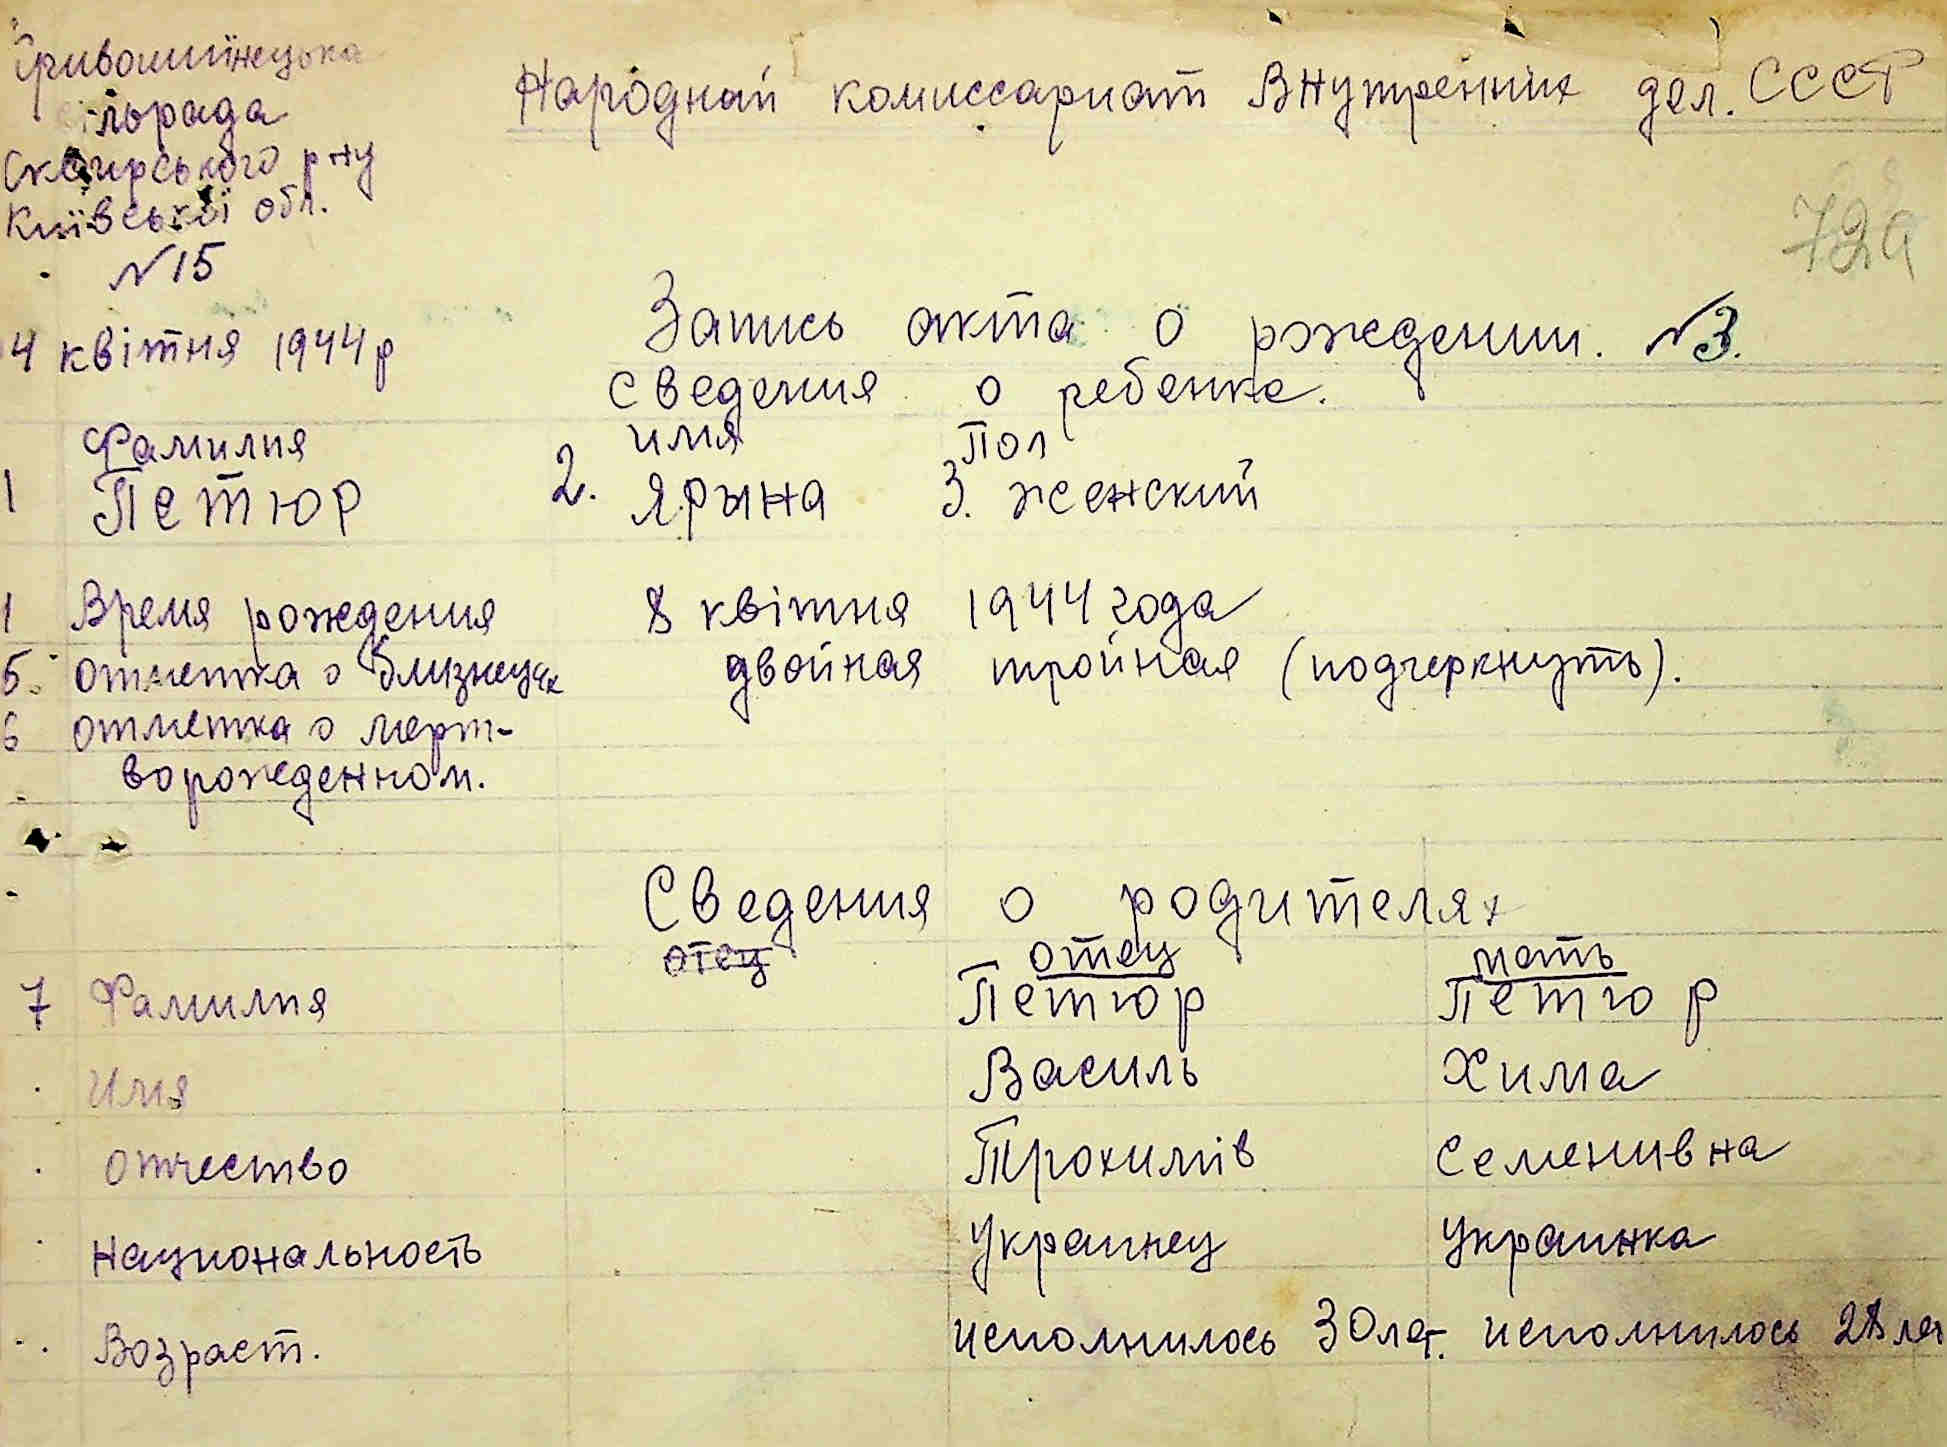 Кривошиїнецька
сільрада
Сквирського р-ну
Київської обл.
№ 15
4 квітня 1944 р
Народный комиссариат Внутренних дел. СССР
72а
Запись акта о рождении. №3.
Сведения о ребенке.
Фамилия имя Пол
1 Петюр 2. Ярына 3. женский
Время рождения 8 квітня 1944 года
5. отметка о близнецах двойная тройная (подчеркнуть).
6 отметка о мерт-
ворожденном.
Сведения о родителях
отец отец мать
7 Фамилия Петюр Петюр
Имя Василь Хима
отчество Трохимів Семенивна
Национальность Украинец Украинка
Возраст. исполнилось 30 лет. исполнилось 28 лет